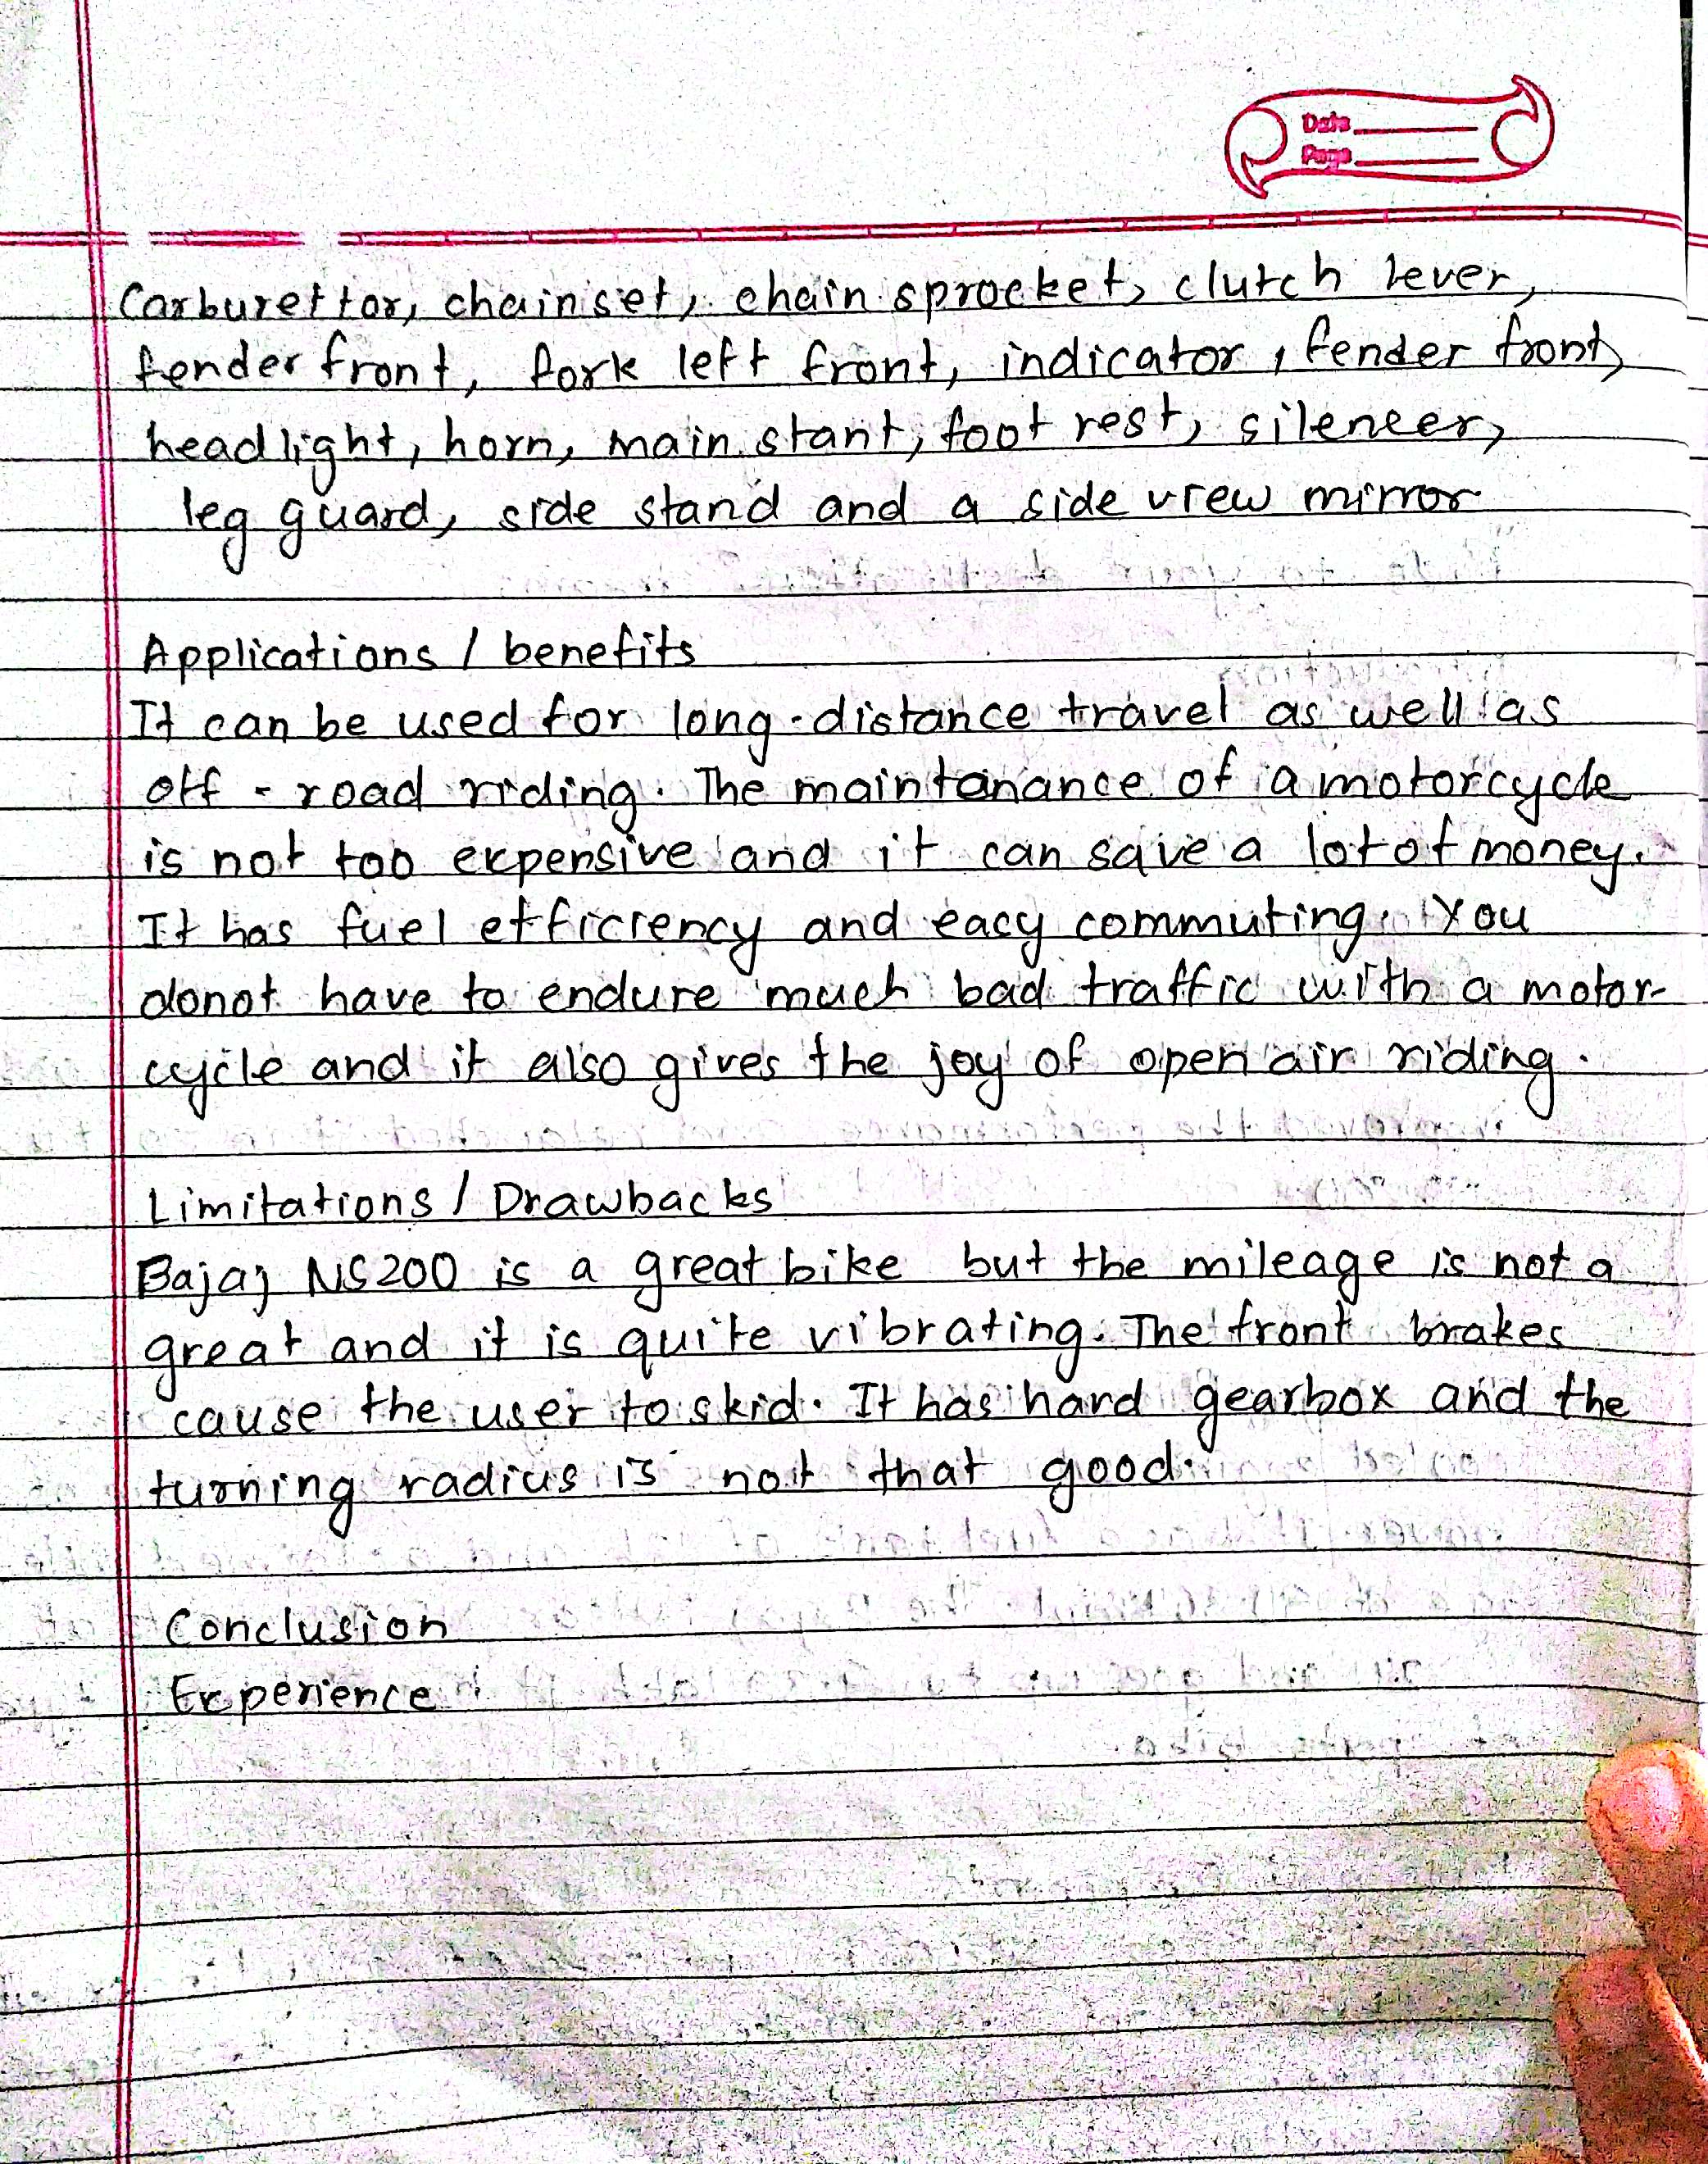 Date
Page
Carburettor, chainset, chain sprocket, clutch lever,
fender front, fork left front, indicator, fender front,
headlight, horn, main stant, foot rest, silencer,
leg guard, side stand and a side view mirror
Applications / benefits
It can be used for long-distance travel as well as
off - road riding. The maintanance of a motorcycle
is not too expensive and it can save a lot of money.
It has fuel efficiency and eacy commuting. You
donot have to endure much bad traffic with a motor-
cycle and it also gives the joy of open air riding.
Limitations / Drawbacks
Bajaj NS200 is a great bike but the mileage is not a
great and it is quite vibrating. The front brakes
cause the user to skid. It has hard gearbox and the
turning radius is not that good.
Conclusion
Experience